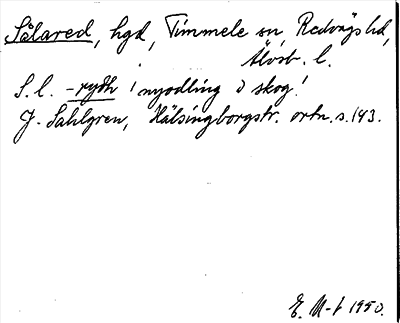 Sålared, hgd, Timmele sn, Redvägs hd,
Älvsb. l.
S. l. -rydh 'nyodling i skog'
J. Sahlgren, Hälsingborgstr. ortn. s. 143.
E. M-t 1950.